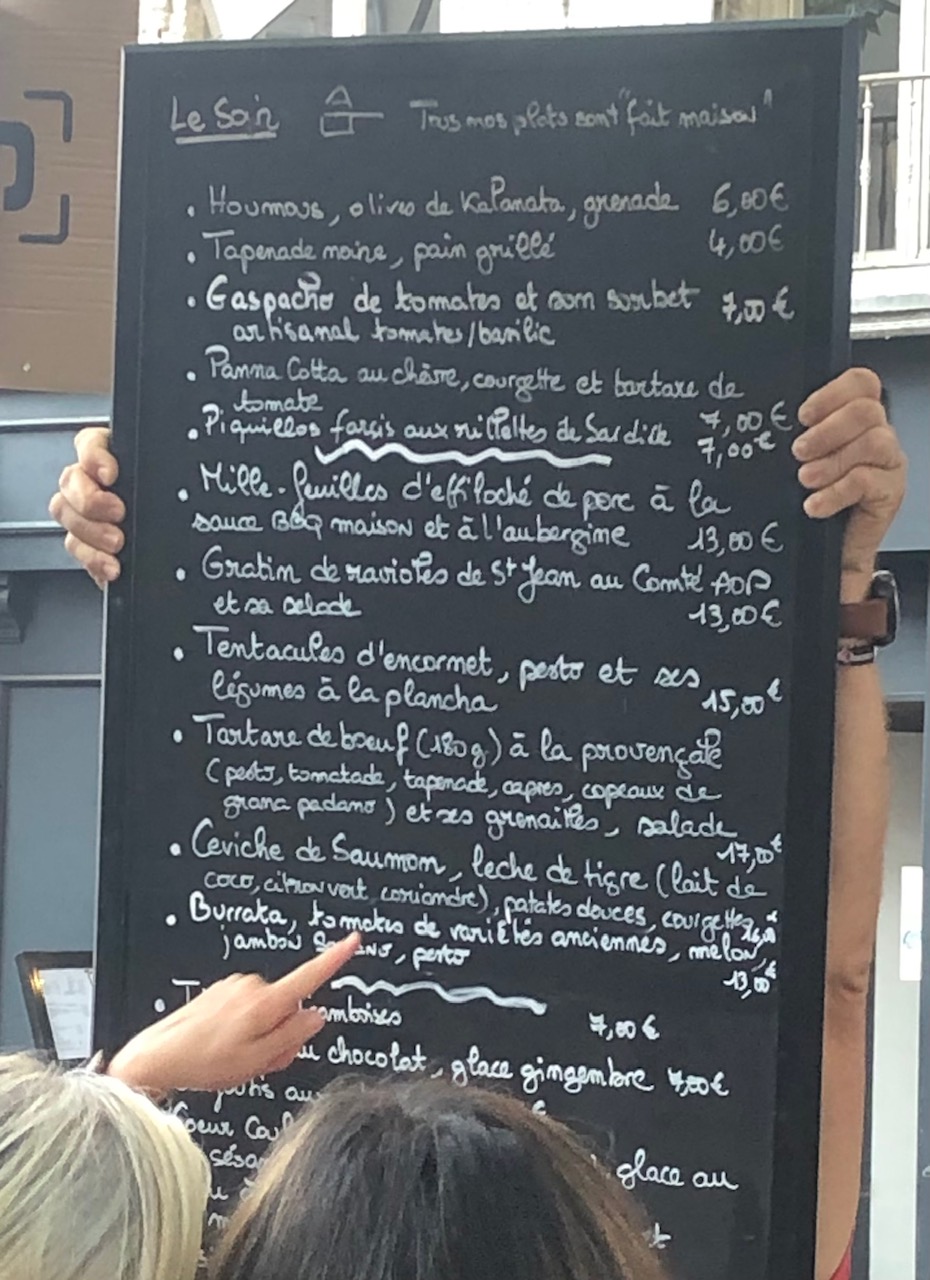 Le Soir Tous nos plats sont "fait maison"
• Houmous, olives de Kalamata, grenade 6,00€
• Tapenade noire, pain grillé 4,00€
• Gaspacho de tomates et son sorbet 7,00€
artisanal tomates/basilic
• Panna Cotta au chèvre, courgette et tartare de
tomate 7,00€
• Piquillos farcis aux rillettes de Sardine 7,00€
• Mille-feuilles d'effiloché de porc à la
sauce BBQ maison et à l'aubergine 13,00€
• Gratin de ravioles de St Jean au Comté AOP
et sa salade 13,00€
• Tentacules d'encornet, pesto et ses
légumes à la plancha 15,00€
• Tartare de boeuf (180g) à la provençale
(pesto, tomatade, tapenade, capres, copeaux de
grana padano) et ses grenailles, salade
17,00€
• Ceviche de Saumon, leche de tigre (lait de
coco, citron vert, coriandre), patates douces, courgettes
• Burrata, tomates de variétés anciennes, melon,
jambon, pesto 13,00€
7,00€
chocolat, glace gingembre 7,00€
glace au